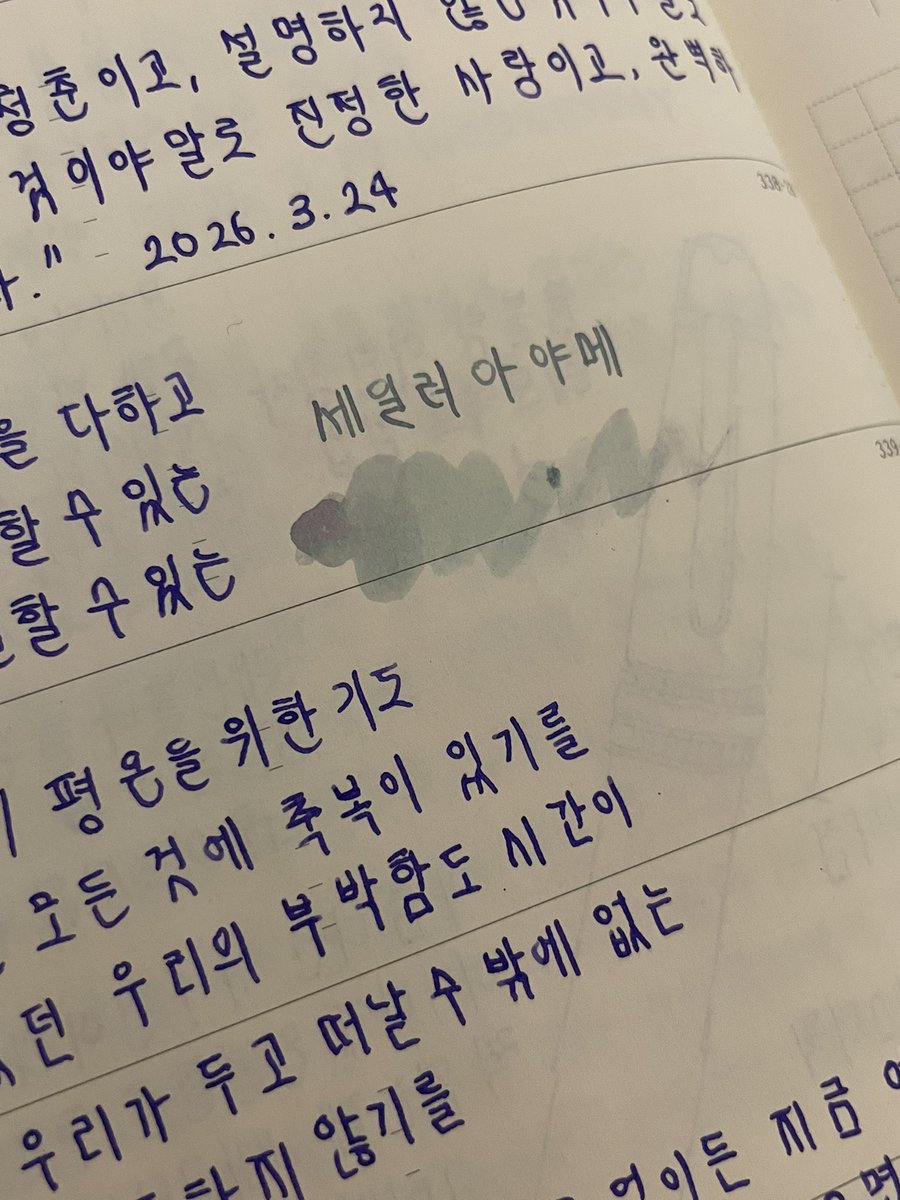 청춘이고, 설명하지
것이야말로 진정한 사랑이고, 완벽하
." - 2026.3.24
338
을 다하고
세일러 아야메
할 수 있는
할 수 있는
339
평온을 위한 기도
모든 것에 축복이 있기를
던 우리의 부박함도 시간이
우리가 두고 떠날 수 밖에 없는
하지 않기를
지금